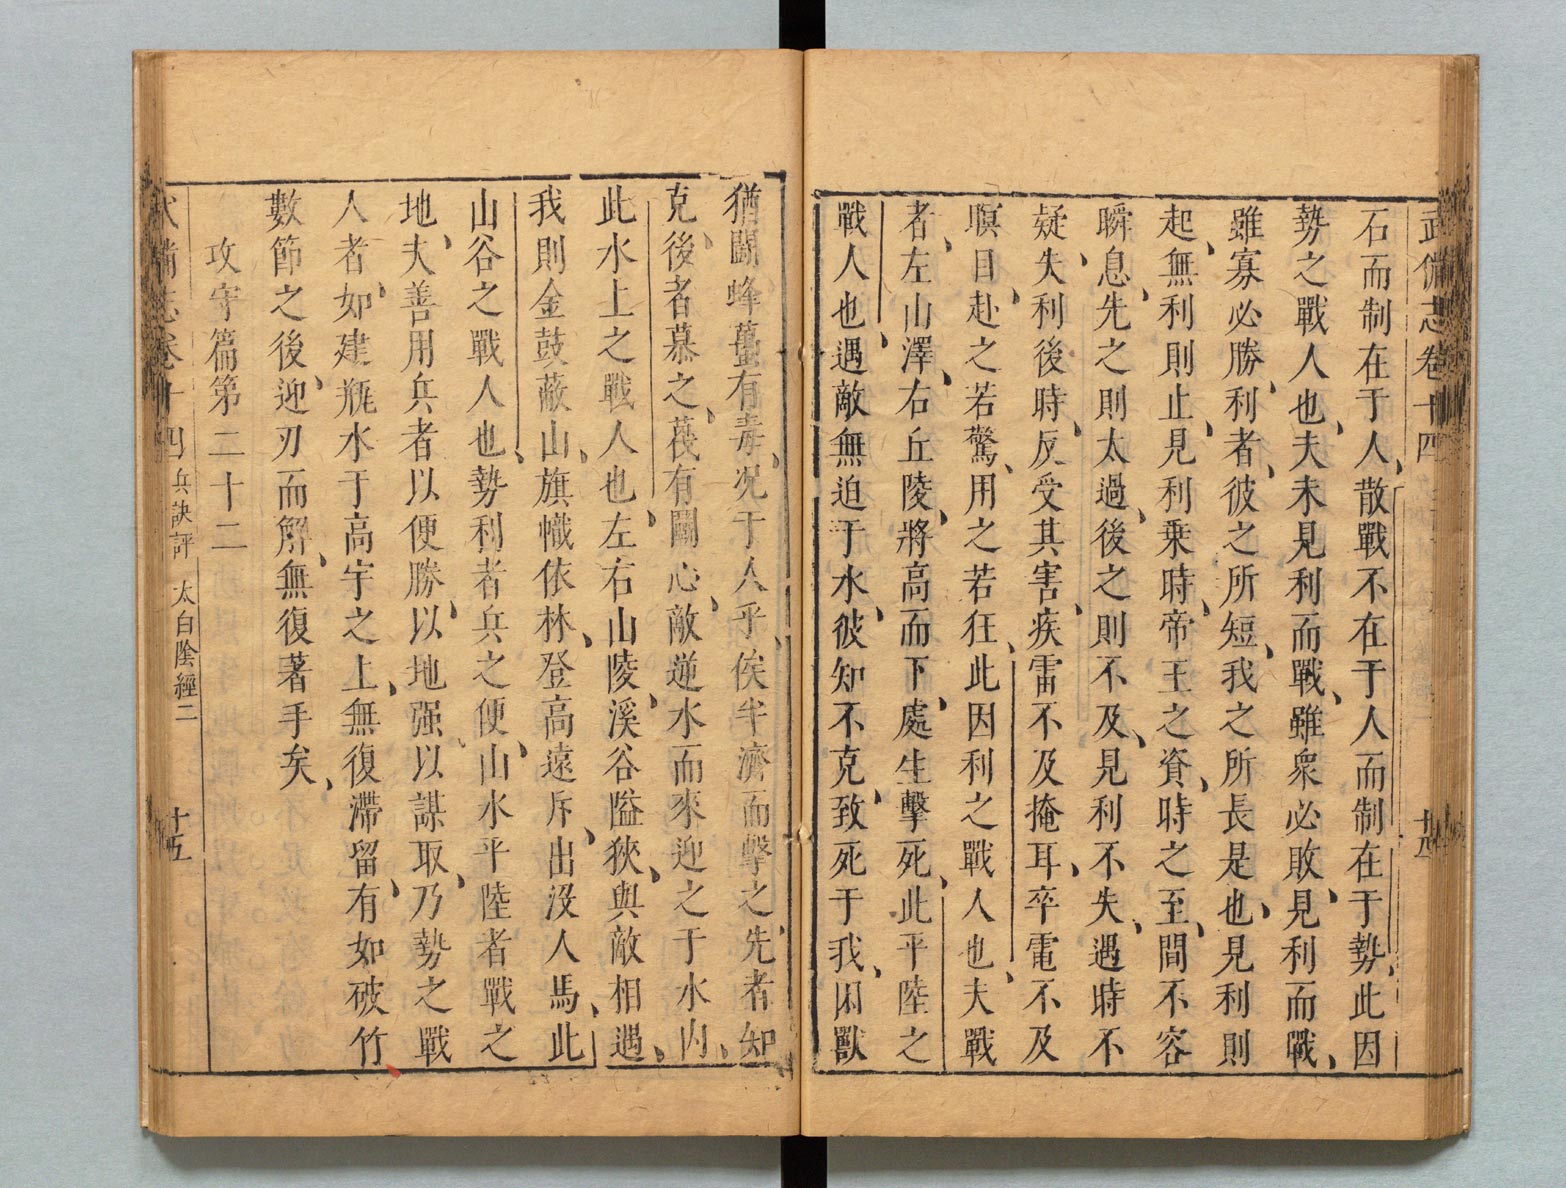 武備志卷十四
石而制在于人散戰不在于人而制在于勢此因
勢之戰人也夫未見利而戰雖衆必敗見利而戰
雖寡必勝利者彼之所短我之所長是也見利則
起無利則止見利乗時帝王之資時之至間不容
瞬息先之則太過後之則不及見利不失遇時不
疑失利後時反受其害疾雷不及掩耳卒電不及
瞑目赴之若驚用之若狂此因利之戰人也夫戰
者左山澤右丘陵將高而下處生擊死此平陸之
戰人也遇敵無迫于水彼知不克致死于我困獸
猶鬬蜂蠆有毒况于人乎俟半濟而擊之先者知
克後者慕之莪有鬬心敵逆水而來迎之于水内
此水上之戰人也左右山陵溪谷隘狹與敵相遇
我則金鼓蔽山旗幟依林登高遠斥出没人馬此
山谷之戰人也勢利者兵之便山水平陸者戰之
地夫善用兵者以便勝以地强以謀取乃勢之戰
人者如建瓶水于高宇之上無復滯留有如破竹
數節之後迎刃而觧無復著手矣
攻守篇第二十二
武備志卷十四 兵訣評 太白陰經二 十五